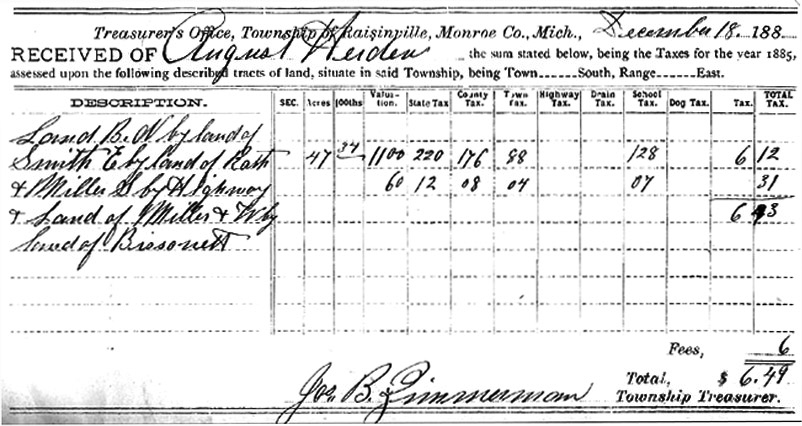 Treasurer's Office, Township of Raisinville, Monroe Co., Mich., December 18. 188
RECEIVED OF August Heiden the sum stated below, being the Taxes for the year 1885,
assessed upon the following described tracts of land, situate in said Township, being Town ______ South, Range ______ East.
DESCRIPTION. SEC. Acres 100ths Valuation. State Tax County Tax. Town Tax. Highway Tax. Drain Tax. School Tax. Dog Tax. Tax. TOTAL TAX.
Land B. N by land of
Smith E by land of Rath 47 34 1100 220 176 88 128 6 12
& Miller S by Highway 60 12 08 04 07 31
& Land of Miller & W by 6 43
land of
Fees, 6
Total, $ 6.49
Jos. B. Zimmerman Township Treasurer.